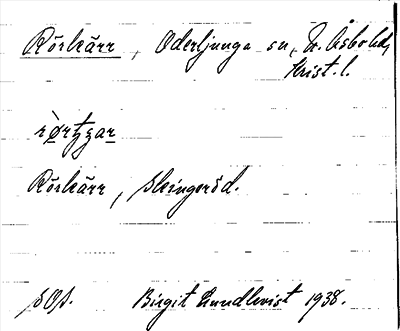 Rörkärr, Oderljunga sn, N. Åsbo hd,
Krist. l.
Rörkärr, Skingeröd.
Birgit Lundkvist 1938.